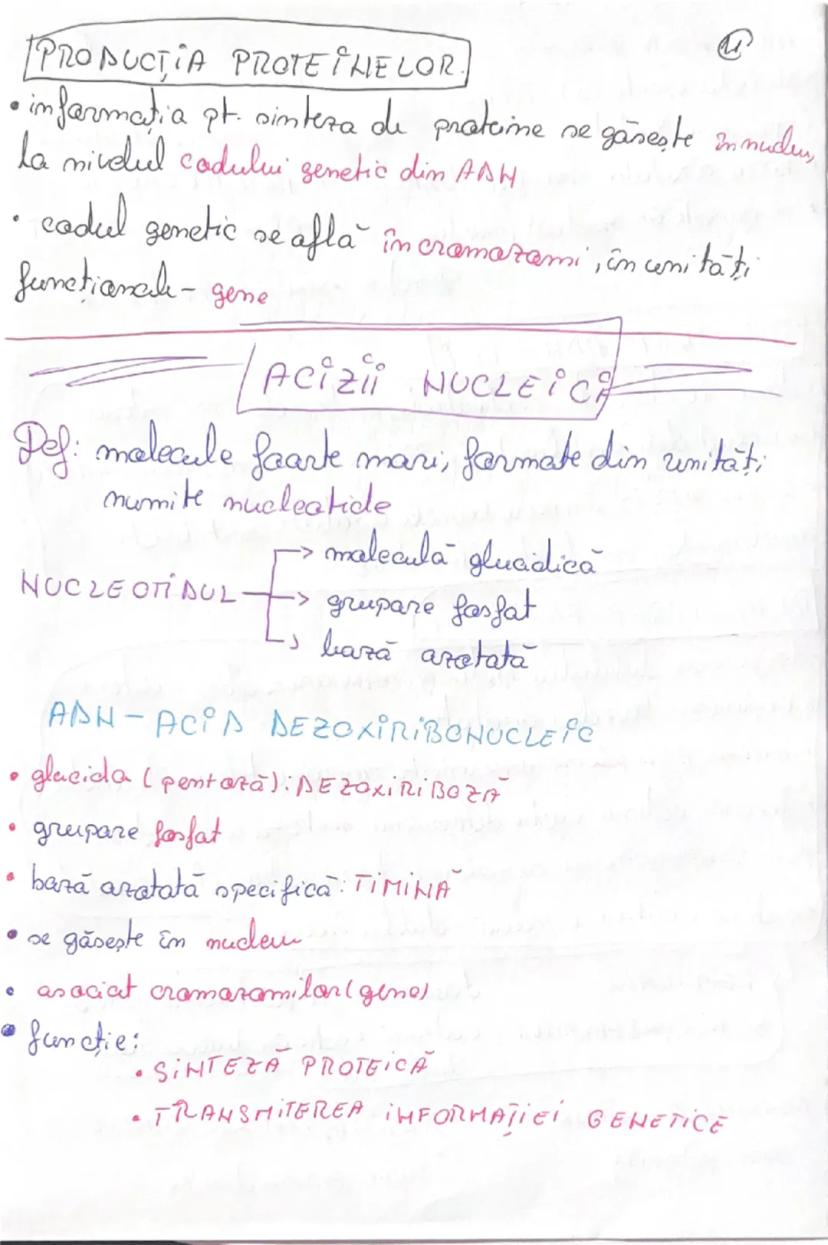 PRODUCȚIA PROTEINELOR.
• informația pt. sinteza de proteine se găsește în nucleu,
la nivelul codului genetic din ADN
• codul genetic se află în cromozomi, în unități
funcționale - gene
ACIZII NUCLEICI
Def: molecule foarte mari, formate din unități
numite nucleotide
→ moleculă glucidică
NUCLEOTIDUL → grupare fosfat
→ bază azotată
ADN - ACID DEZOXIRIBONUCLEIC
• glucida (pentoză): DEZOXIRIBOZĂ
• grupare fosfat
• bază azotată specifică: TIMINA
• se găsește în nucleu
• asociat cromozomilor (gene)
• funcție:
• SINTEZĂ PROTEICĂ
• TRANSMITEREA INFORMAȚIEI GENETICE